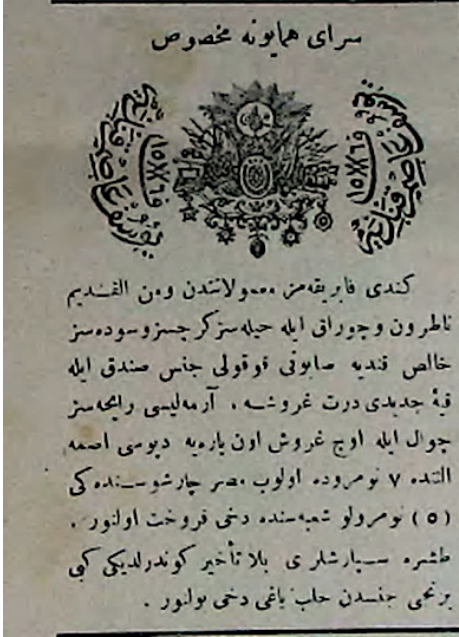 سرای همایونه مخصوص
كندی فابریقه‌مز معمولاتندن ومن القدیم
ناطرون و چوراق ایله حیله‌سز كرجسز و سوده‌سز
خالص قندیه صابونی قوقولی جنس صندق ایله
قیهٔ جدیدی درت غروشه ، آرمه‌لیسی رایحه‌سز
چوال ایله اوچ غروش اون پاره‌یه دپوسی اصمه
التنده ٧ نومروده اولوب مصر چارشوسنده‌كی
(٥) نومرولو شعبه‌سنده دخی فروخت اولنور .
طشره سپارشلری بلا تأخیر كوندرلدیكی كبی
برنجی جنسدن حلب یاغی دخی بولنور .